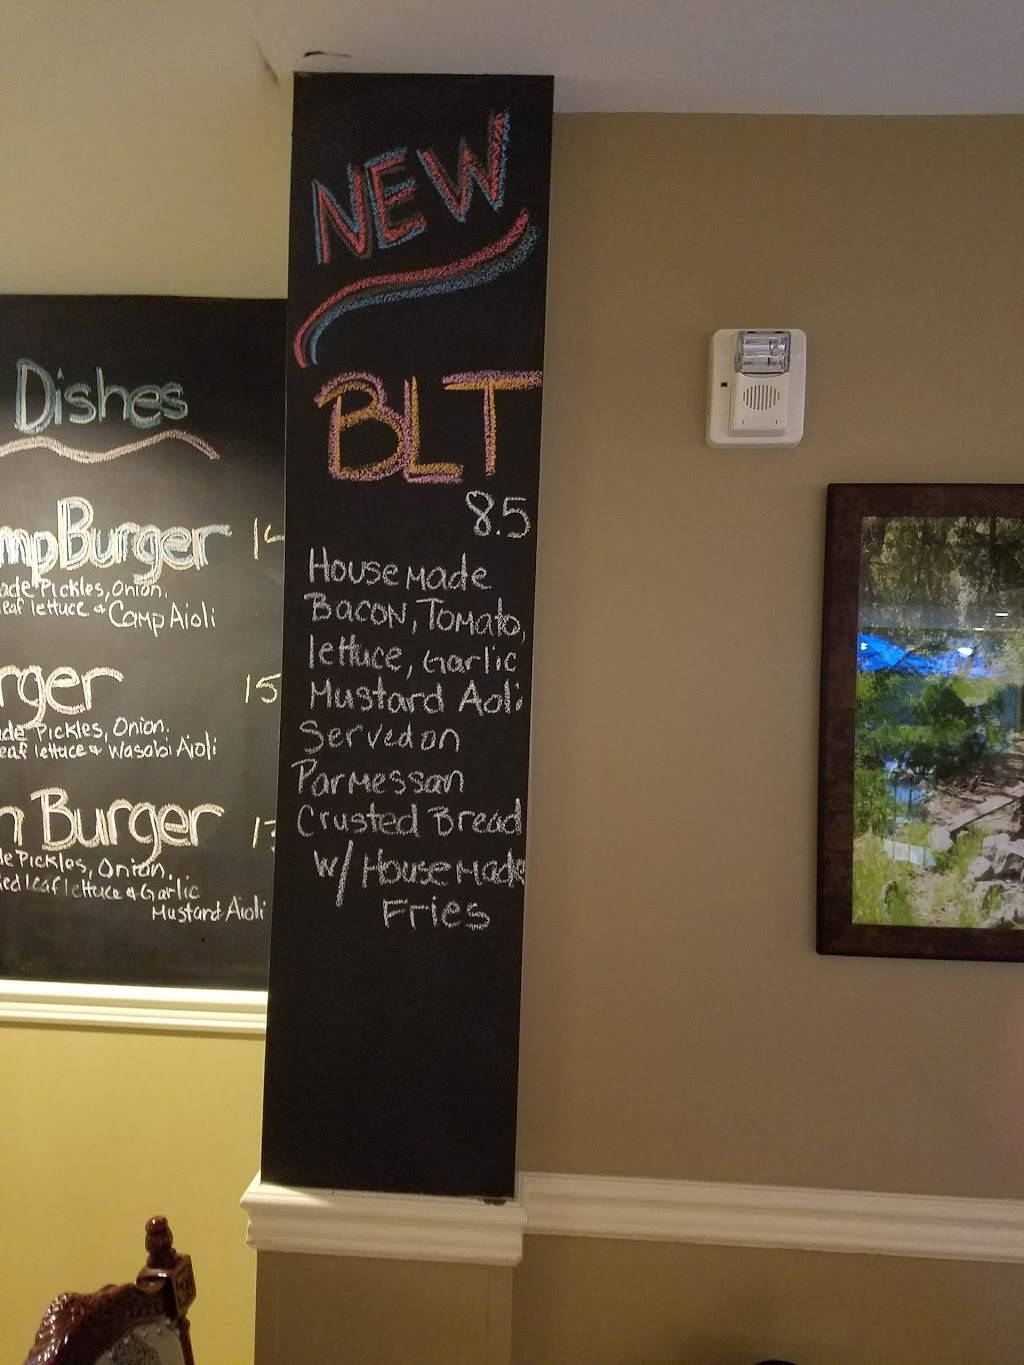 Dishes
Burger
Pickles, Onion,
leaf lettuce & Camp Aioli
15
Pickles, Onion,
leaf lettuce & Wasabi Aioli
Burger
Pickles, Onion,
leaf lettuce & Garlic
Mustard Aioli
NEW
BLT
8.5
House Made
Bacon, Tomato,
lettuce, Garlic
Mustard Aoli
Served on
Parmessan
Crusted Bread
w/ House Made
Fries